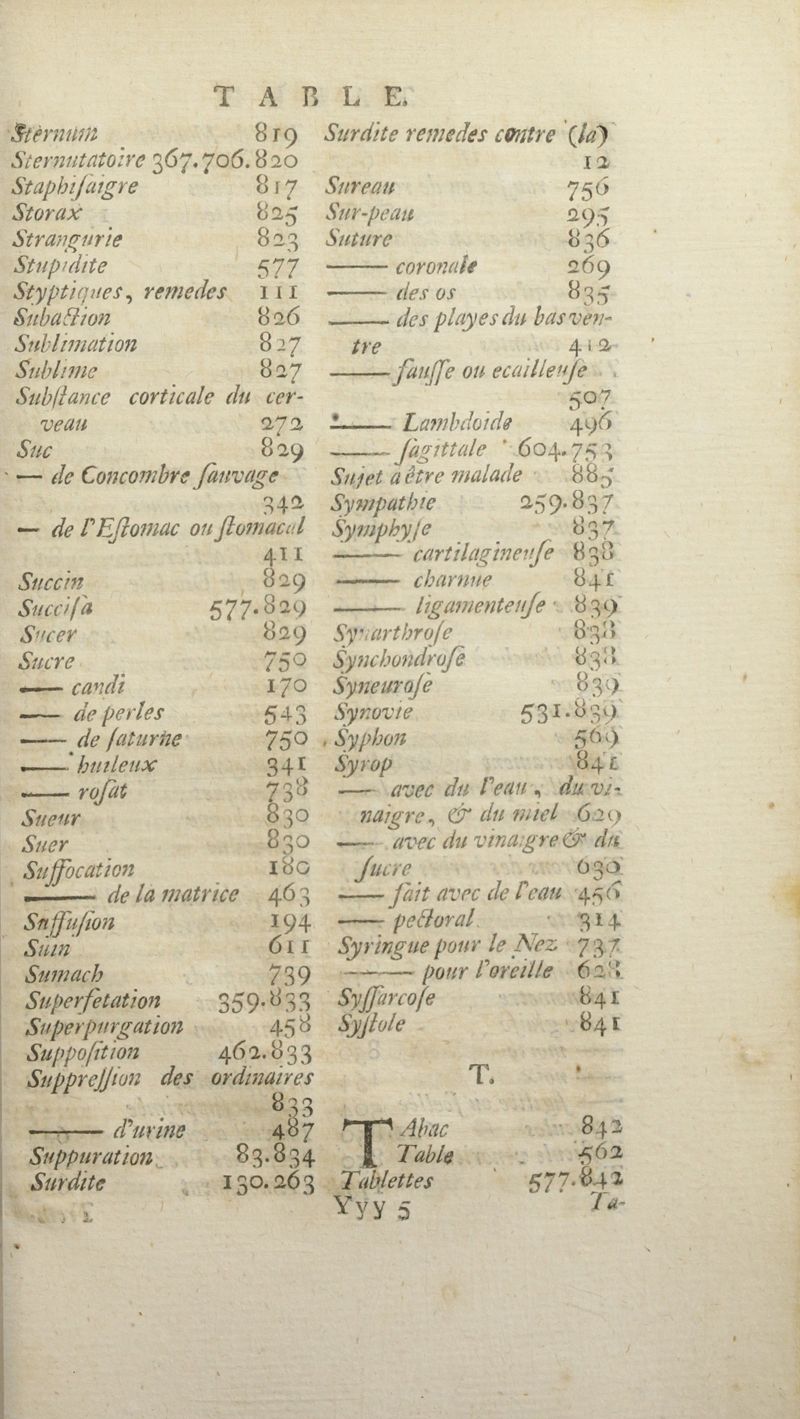 TABLE.
Stèrnum 819
Sternutatoire 367.706.820
Staphiſaigre 817
Storax 825
Strangurie 823
Stupidite 577
Styptiques, remedes 111
Subaction 826
Sublimation 827
Sublime 827
Subſtance corticale du cer-
veau 272
Suc 829
— de Concombre ſauvage
342
— de l'Eſtomac ou ſtomacal
411
Succin 829
Succiſa 577.829
Sucer 829
Sucre 750
—— candi 170
—— de perles 543
—— de ſaturne 750
—— huileux 341
—— roſat 738
Sueur 830
Suer 830
Suffocation 180
——— de la matrice 463
Suffuſion 194
Suin 611
Sumach 739
Superfetation 359.833
Superpurgation 458
Suppoſition 462.833
Suppreſſion des ordinaires
833
——— d'urine 487
Suppuration 83.834
Surdite 130.263
Surdite remedes contre (la)
12
Sureau 756
Sur-peau 295
Suture 836
—— coronale 269
—— des os 835
—— des playes du bas ven-
tre 412
—— fauſſe ou ecailleuſe
507
—— Lambdoide 496
—— ſagittale 604.753
Sujet a être malade 885
Sympathie 259.837
Symphyſe 837
——— cartilagineuſe 838
——— charnue 841
——— ligamenteuſe 839
Synarthroſe 838
Synchondroſe 838
Syneuroſe 839
Synovie 531.839
Syphon 569
Syrop 841
—— avec du l'eau, du vi-
naigre, & du miel 629
—— avec du vinaigre & du
ſucre 630
—— fait avec de l'eau 456
—— pectoral 314
Syringue pour le Nez 737
——— pour l'oreille 628
Syſſarcoſe 841
Syſtole 841
T.
TAbac 842
Table 562
Tablettes 577.842
Yyy 5 Ta-